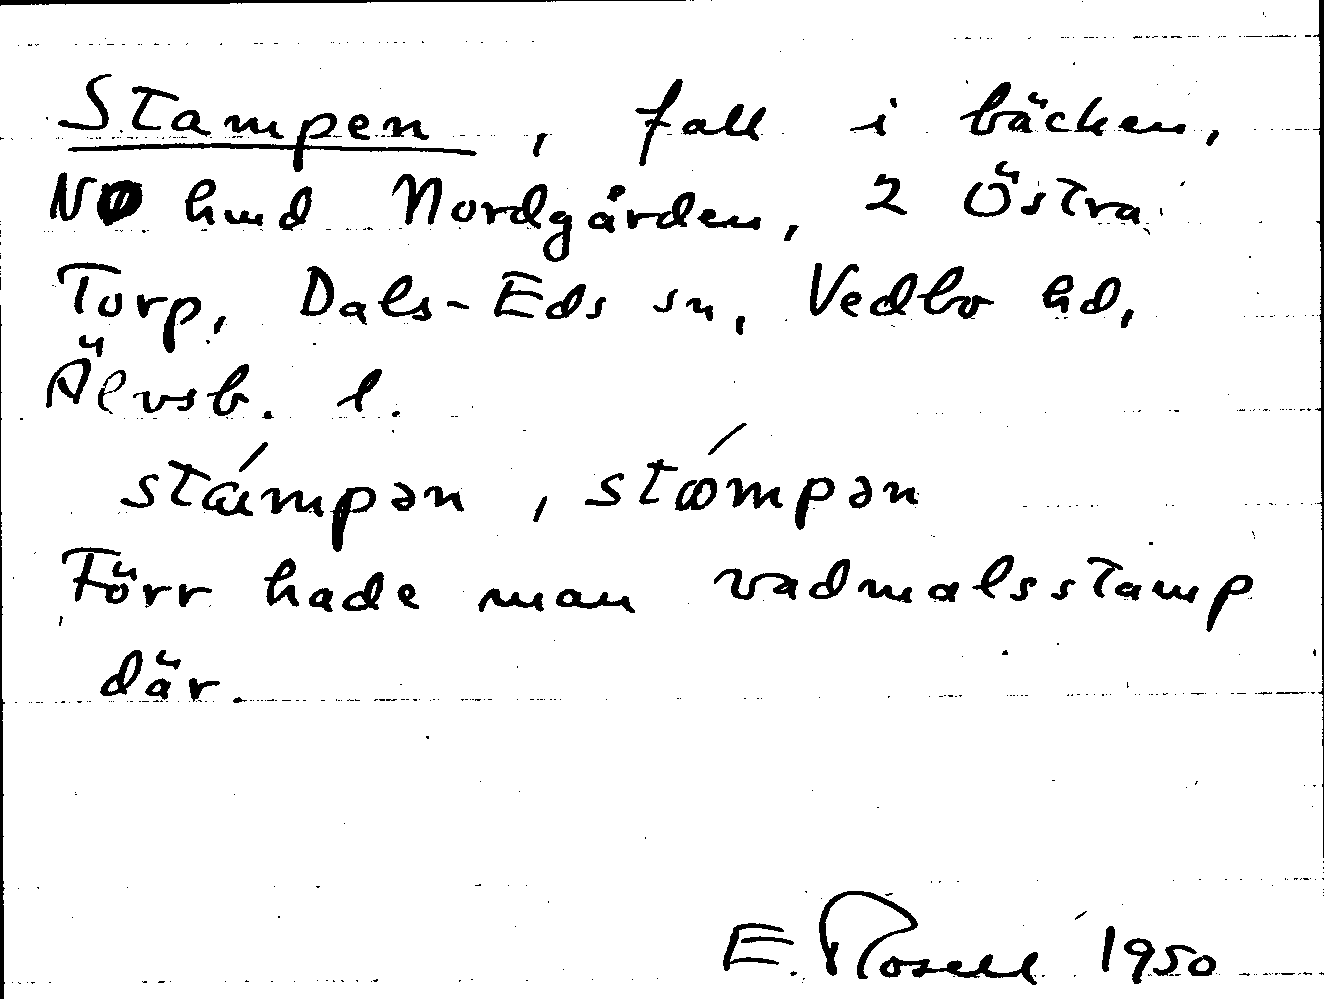 Stampen, fall i bäcken,
NO hmd Nordgården, 2 Östra
Torp, Dals-Eds sn, Vedbo hd,
Älvsb. l.
stámpən, stɷ́mpən
Förr hade man vadmalsstamp
där.
E. Rosell 1950